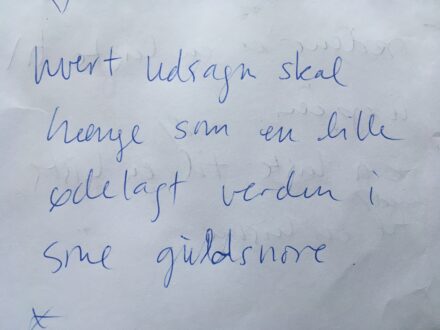 hvert udsagn skal
hænge som en lille
ødelagt verden i
sine guldsnore